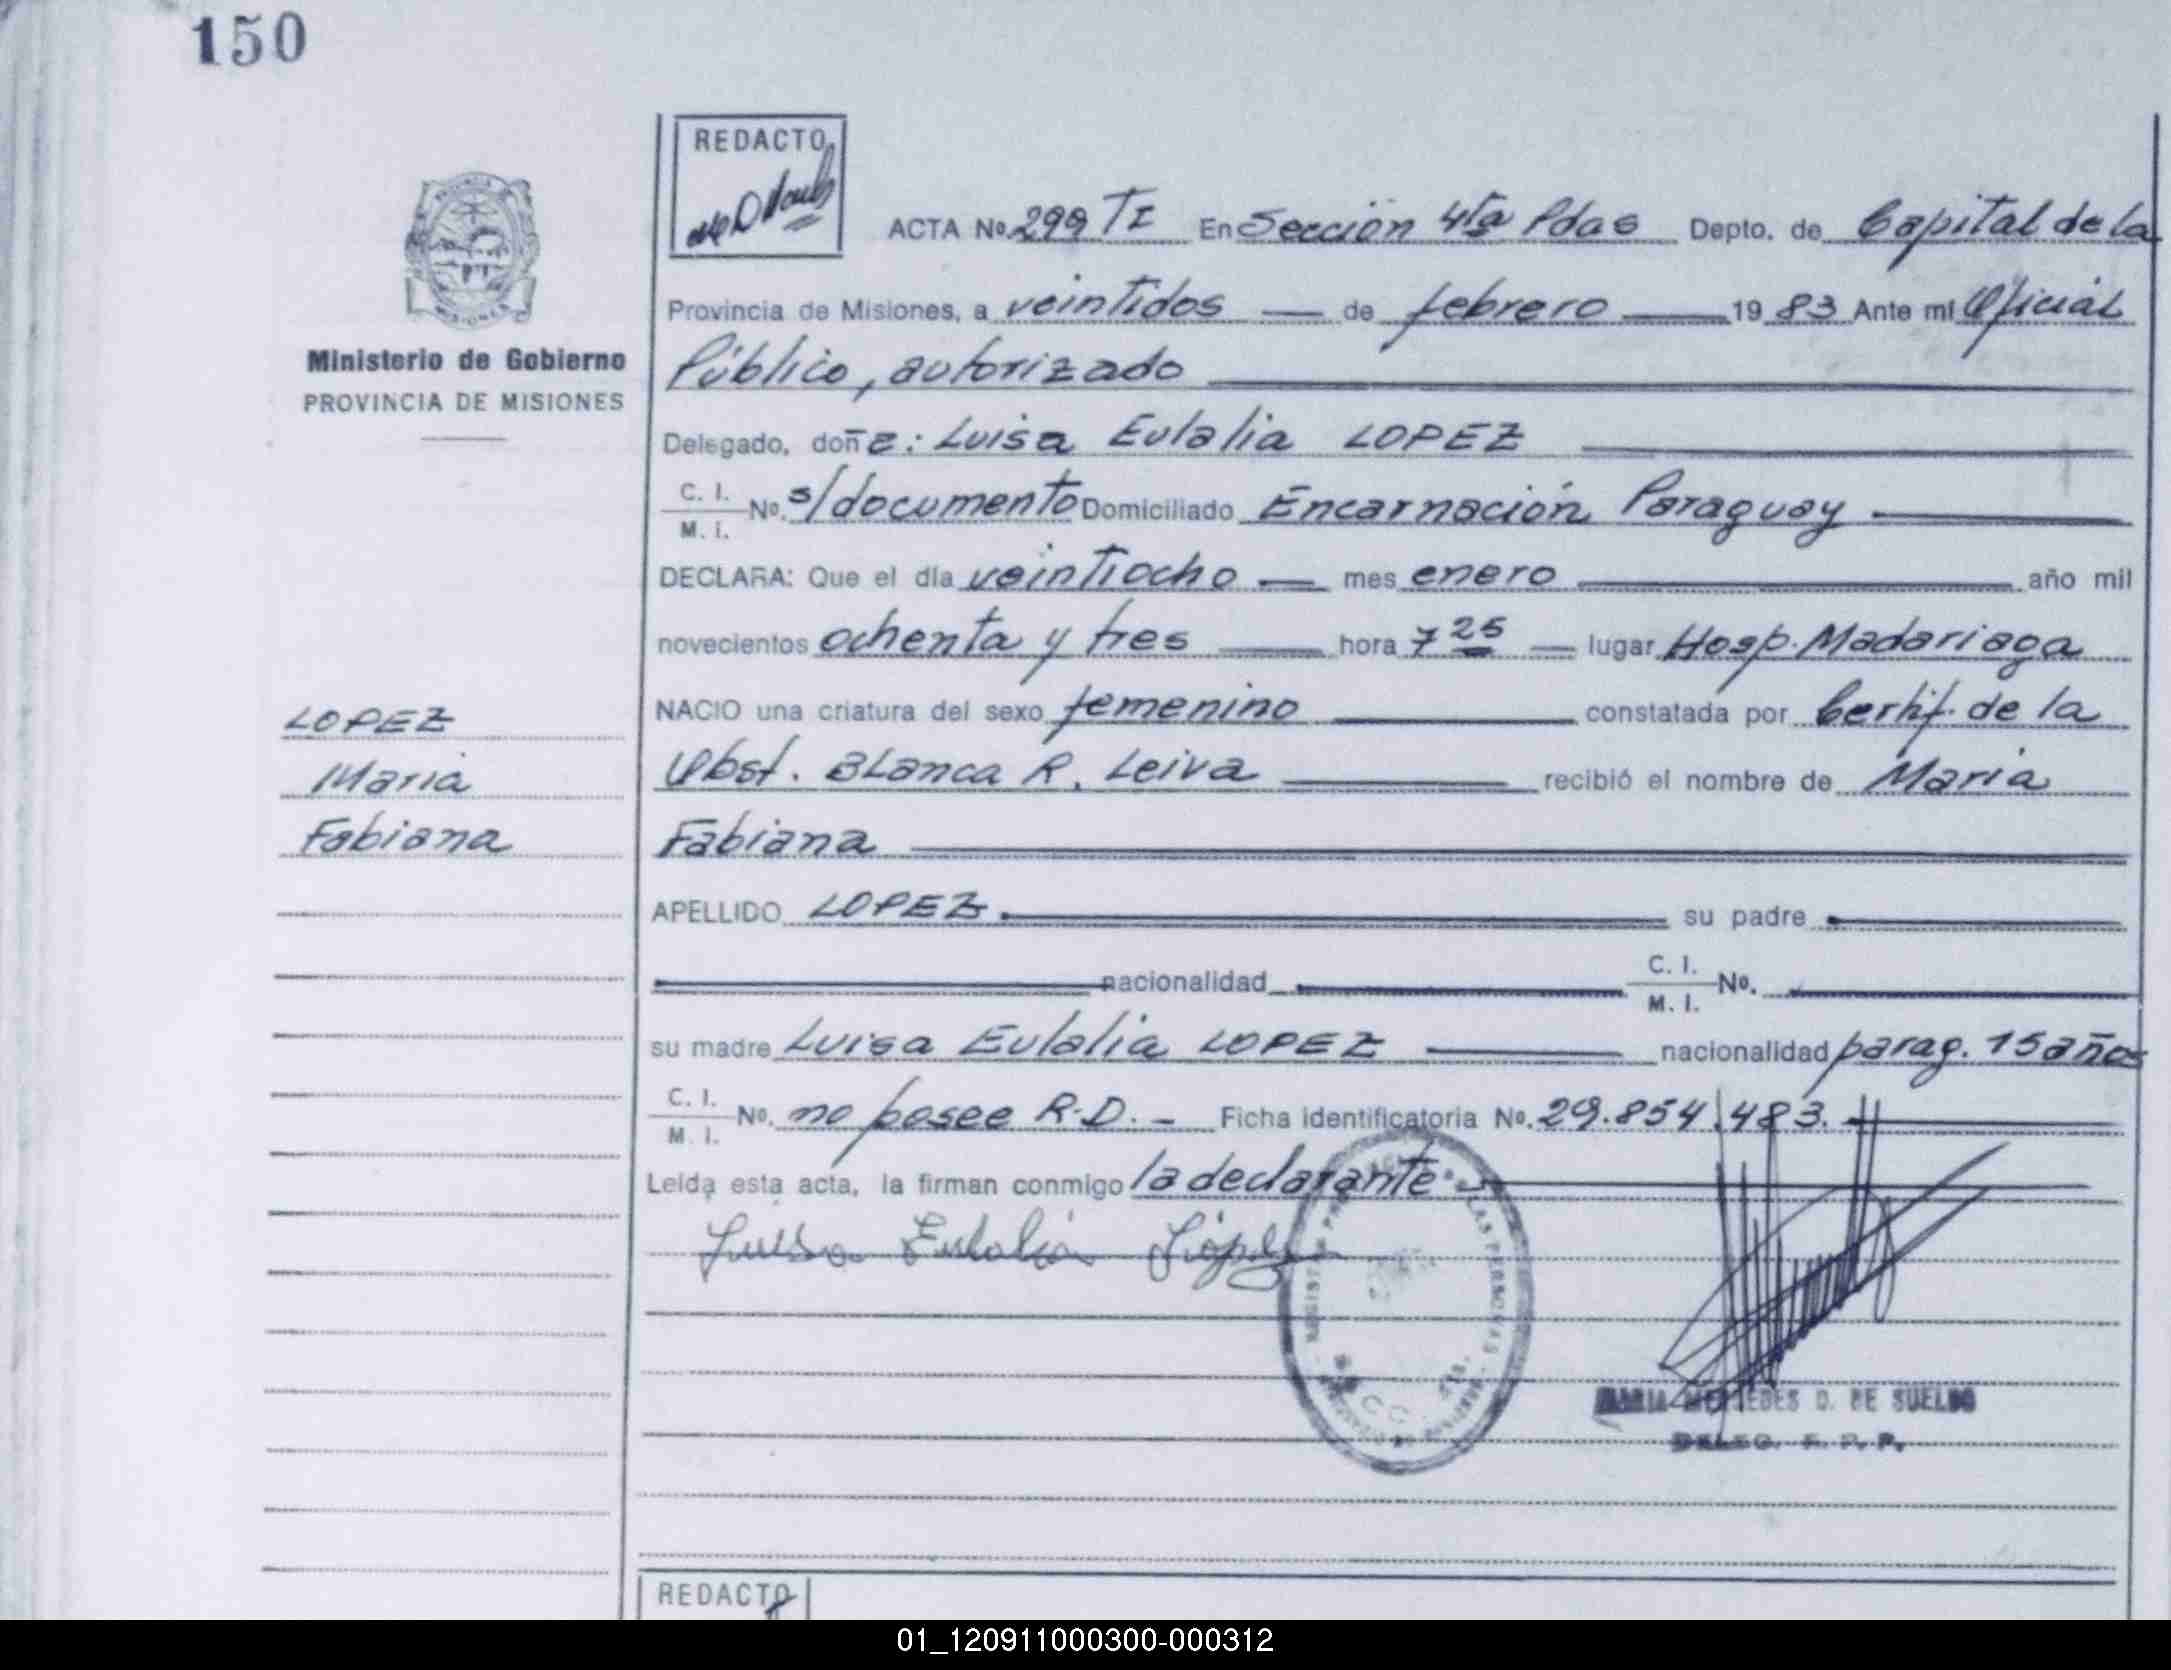 150
REDACTO
ACTA No. 299 TI En Sección 4ta Pdas Depto. de Capital de la
Provincia de Misiones, a veintidos de febrero 1983 Ante mi Oficial
Ministerio de Gobierno
PROVINCIA DE MISIONES
Público, autorizado
Delegado, doña: Luisa Eulalia LOPEZ
C. I.
M. I. No. s/documento Domiciliado Encarnación Paraguay
DECLARA: Que el día veintiocho mes enero año mil
novecientos ochenta y tres hora 7 25 lugar Hosp. Madariaga
LOPEZ
Maria
Fabiana
NACIO una criatura del sexo femenino constatada por Certif. de la
Obst. Blanca R. Leiva recibió el nombre de Maria
Fabiana
APELLIDO LOPEZ su padre
nacionalidad C. I.
M. I. No.
su madre Luisa Eulalia LOPEZ nacionalidad parag. 15 años
C. I.
M. I. No. no posee R.D. Ficha identificatoria No. 29.854.483.
Leida esta acta, la firman conmigo la declarante
Luisa Eulalia López
MARIA MERCEDES D. DE SUELDO
REDACTO
01_120911000300-000312